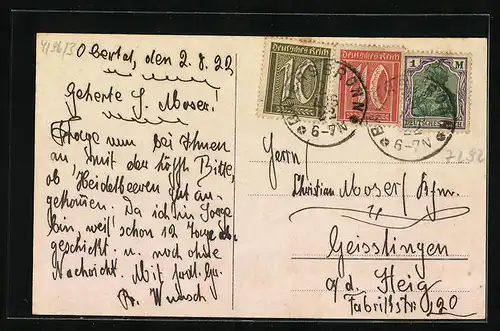 4196/3
Obertal, den 2.8.22
Geehrte H. Moser.
Frage nun bei Ihnen
an, mit der höfl. Bitte,
ob Heidelbeeren gut an-
gekommen. Da ich in Sorge
bin, weil schon 12 Tage ab-
geschickt u. noch ohne
Nachricht. Mit frdl. Gr.
Fr. Wunsch
Deutsches Reich
10
Deutsches Reich
10
1 M
DEUTSCHES REICH
BRONN
6-7N
6-7N
7292
Herrn
Christian Moser / Kfm.
Geisslingen
a/d. Steig
Fabrikstr. 20